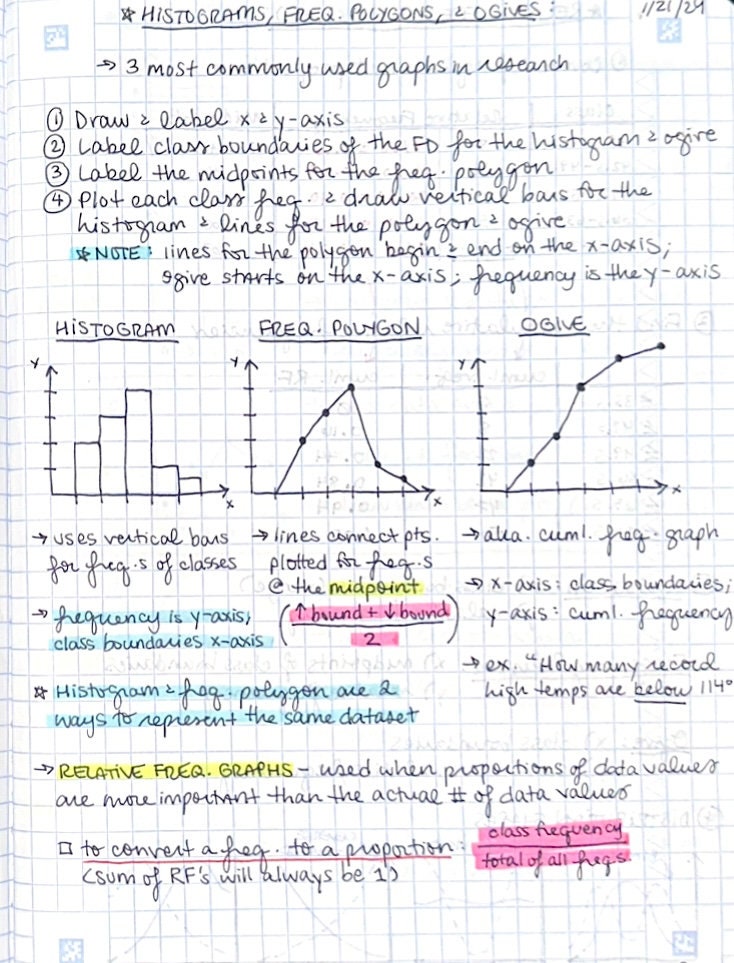 * HISTOGRAMS, FREQ. POLYGONS, & OGIVES:
1/21/24
→ 3 most commonly used graphs in research
① Draw & label x & y-axis
② Label class boundaries of the FD for the histogram & ogive
③ Label the midpoints for the freq. polygon
④ Plot each class freq. & draw vertical bars for the
histogram & lines for the polygon & ogive
* NOTE: lines for the polygon begin & end on the x-axis;
ogive starts on the x-axis; frequency is the y-axis
HISTOGRAM
FREQ. POLYGON
OGIVE
Y
X
Y
X
Y
X
→ uses vertical bars
for freq.s of classes
→ frequency is y-axis;
class boundaries x-axis
→ lines connect pts.
plotted for freq.s
@ the midpoint
(↑ bound + ↓ bound
2)
→ aka. cuml. freq. graph
→ x-axis: class boundaries;
y-axis: cuml. frequency
→ ex. "How many record
high temps are below 114°
* Histogram & freq. polygon are 2
ways to represent the same dataset
→ RELATIVE FREQ. GRAPHS - used when proportions of data values
are more important than the actual # of data values
□ to convert a freq. to a proportion: class frequency
total of all freqs.
(sum of RF's will always be 1)